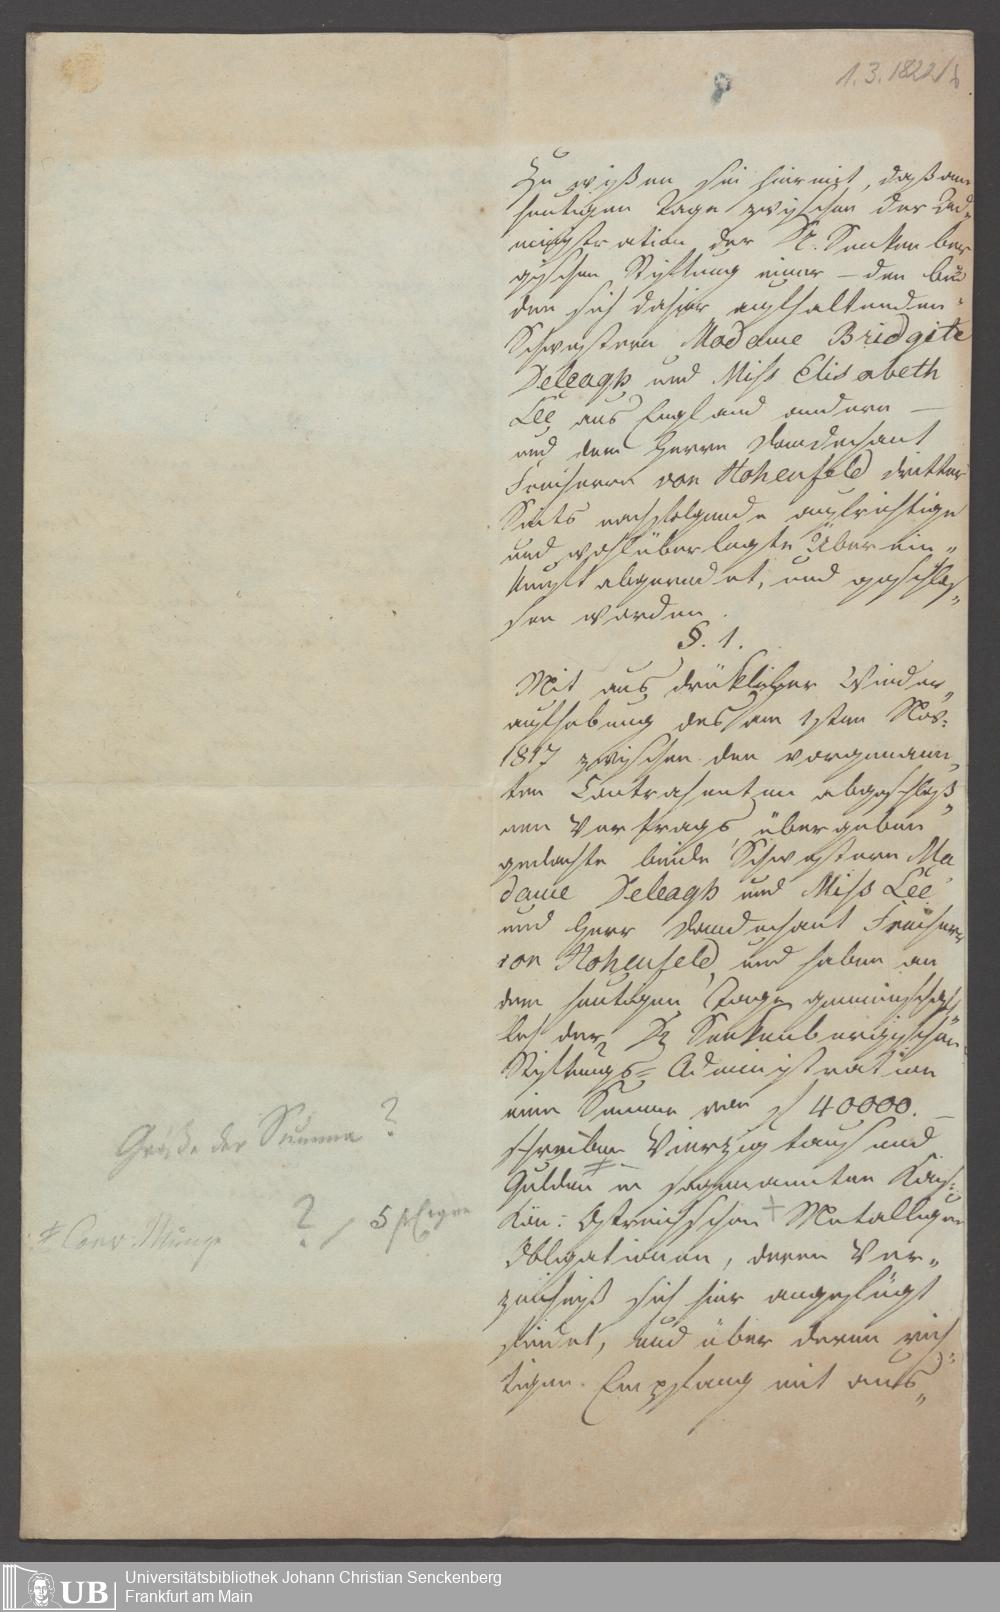 1.3.1822/b
Zu wißen sei hiermit, daß am
heutigen Tage zwischen der Ad„
ministration der Dr. Senkenber
gischen Stiftung einer – den bei
den sich dahier aufhaltenden
Schwestern Madame Bridgite
Deleagh und Miss Elisabeth
Lee aus England andern –
und dem Herrn Domdechant
Freiherrn von Hohenfeld dritter
Seits nachfolgende aufrichtige
und wohlüberlegte Überein„
kunft abgeredet, und geschlos„
sen worden.
§. 1.
Mit ausdrüklicher Wieder„
aufhebung des am 1sten Nov:
1817 zwischen den vorgenann„
ten Contrahenten abgeschloß„
nen Vertrags, übergeben
gedachte beide Schwestern Ma
dame Deleagh und Miss Lee
und Herr Domdechant Freiherr
von Hohenfeld, und haben an
dem heutigen Tage gemeinschaft„
lich der Dr Senkenbergischen
Stiftungs=Administration
eine Summe von f 40000. –
schreibe Vierzig tausend
Gulden ‡ in sogenannten Kais:
Kön: Östreichschen + Metallique
Obligationen, deren Ver„
zeichniß sich hier angefügt
findet, und über deren rich„
tigen Empfang mit aus„
Größe der Summa ?
‡ Conv: Münze
? / 5
UB
Universitätsbibliothek Johann Christian Senckenberg
Frankfurt am Main